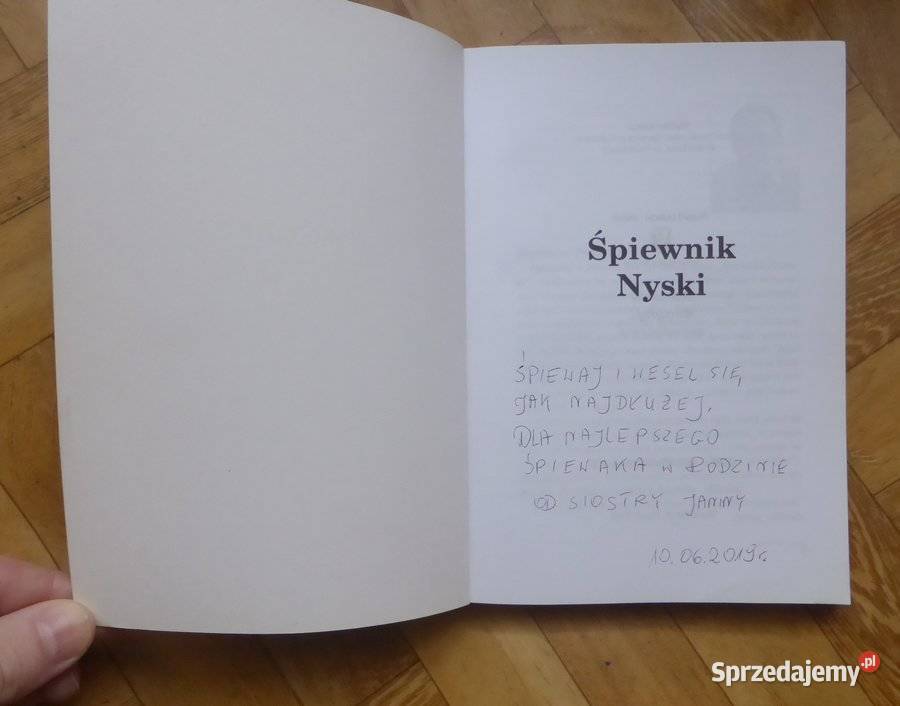 Śpiewnik
Nyski
ŚPIEWAJ I WESEL SIĘ,
JAK NAJDŁUŻEJ.
DLA NAJLEPSZEGO
ŚPIEWAKA W RODZINIE
OD SIOSTRY JANINY
10.06.2019r.
Sprzedajemy.pl